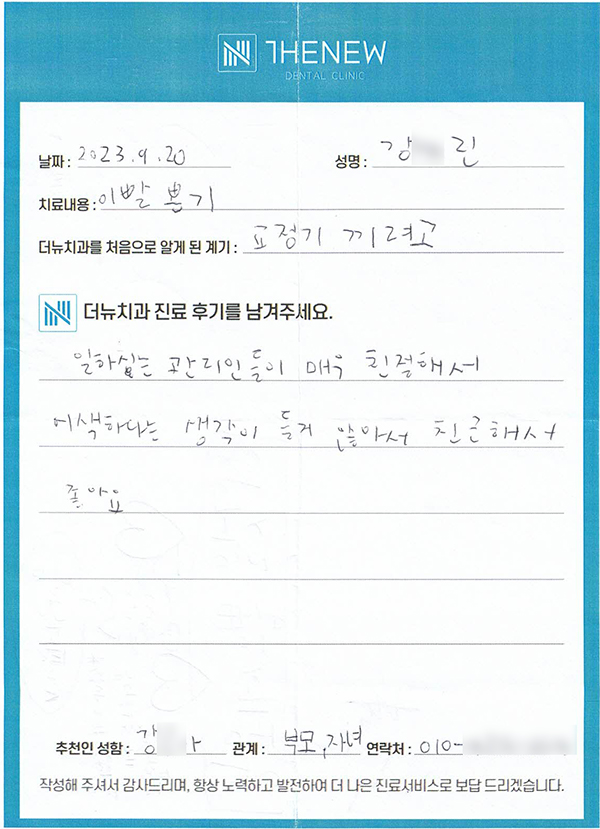 THENEW
DENTAL CLINIC
날짜 : 2023.9.20 성명 : 강 린
치료내용 : 이빨 본기
더뉴치과를 처음으로 알게 된 계기 : 요정기 끼려고
더뉴치과 진료 후기를 남겨주세요.
일하십는 관리인들이 매우 친절해서
어색하다는 생각이 들게 않아서 친근해서
좋아요
추천인 성함 : 강 관계 : 부모,자녀 연락처 : 010-
작성해 주셔서 감사드리며, 항상 노력하고 발전하여 더 나은 진료서비스로 보답 드리겠습니다.